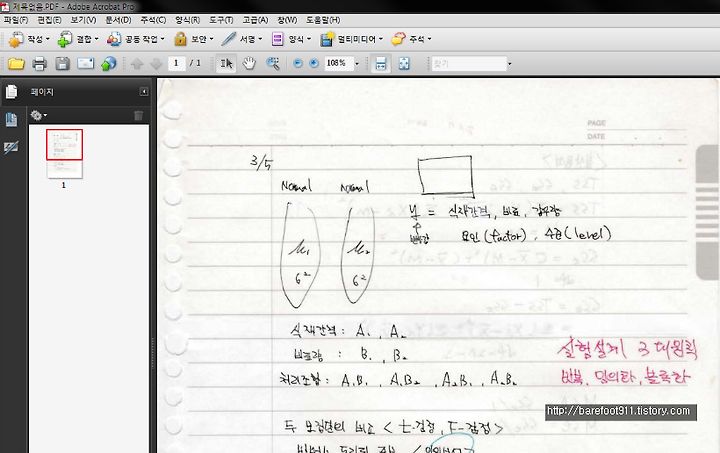 제목없음.PDF - Adobe Acrobat Pro
파일(F) 편집(E) 보기(V) 문서(D) 주석(C) 양식(R) 도구(T) 고급(A) 창(W) 도움말(H)
작성 결합 공동 작업 보안 서명 양식 멀티미디어 주석
1 / 1 108% 찾기
페이지
1
PAGE
DATE
3/5
Normal Normal
y = 식재간격, 비료, 강우량
요인(factor), 수준(level)
μ₁ μ₂
6² 6²
식재간격: A₁, A₂
비료량: B₁, B₂
처리조합: A₁B₁, A₁B₂, A₂B₁, A₂B₂
실험설계 3대원칙
반복, 임의화, 블록화
http://barefoot911.tistory.com
두 모집단의 비교 < t-검정, F-검정>